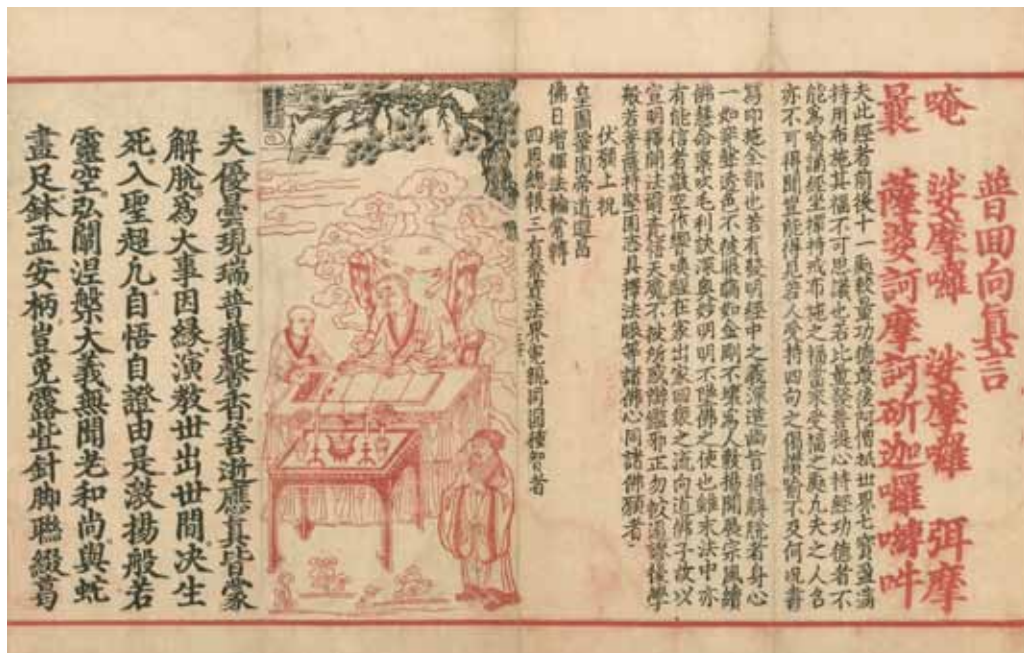 普回向真言
唵 娑摩囉 娑摩囉 弭摩
曩 薩婆訶摩訶斫迦囉嚩吽
夫此經者前後十一處較量功德最後向僧祇世界七寶盈滿
持用布施其福不可思議也若比量發菩提心持經功德者不
能為喻誦經坐禪持戒布施之福當來受福之處凡夫之人名
亦不可得聞豈能得見若人受持四句之偈讚喻不及何況書
寫印施全部也若有發明經中之義深達幽旨得解脫者身心
一如 透色不被眼瞞如金剛不壞為人敷揚開展宗風續
佛慧命 吹毛利訣深奧妙明明不墮佛之使也雖末法中亦
有能信者敲空作響喚醒在家出家四衆之流向道佛子故以
宣明釋開法 信天魔不被所惑辯鑑邪正勿 諸後學
般若菩薩將堅固志具擇法眼等諸佛心同諸佛願者
伏願上祝
皇圖鞏固帝道遐昌
佛日增輝法輪常轉
四恩總報三有齊資法界冤親同圓種智者
夫優曇現瑞普獲馨香善逝應真皆蒙
解脫為大事因緣演教世出世間決生
死入聖超凡自悟自證由是激揚般若
靈空弘闡涅槃大義無聞老和尚與虵
畫足鉢盂安柄豈免露些針脚聯綴葛